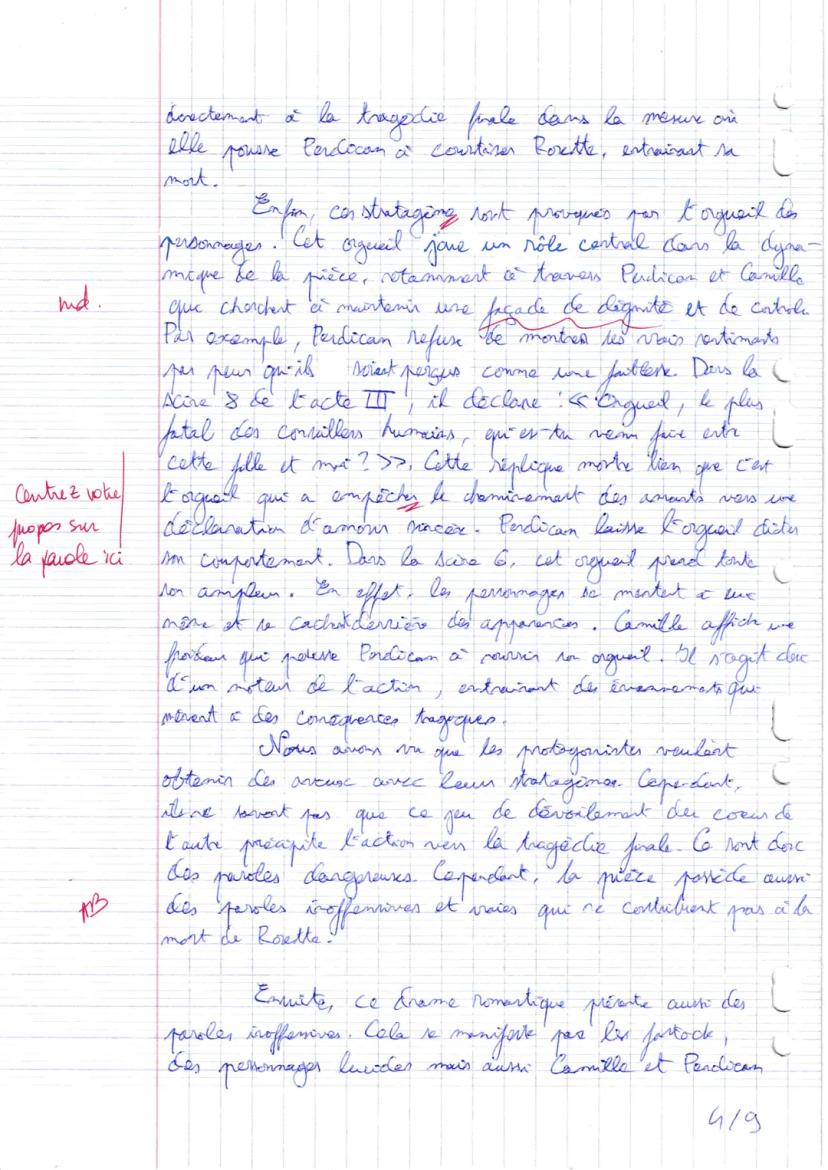 directement à la tragédie finale dans la mesure où
elle pousse Perdican à courtiser Rosette, entrainant sa
mort.
Enfin, ces stratagème sont provoqués par l'orgueil des
personnages. Cet orgueil joue un rôle central dans la dyna-
mique de la pièce, notamment à travers Perdican et Camille
md.
que cherchent à maintenir une façade de dignité et de controle
Par exemple, Perdican refuse de montrer ses vrais sentiments
par peur qu'ils soient perçus comme une faiblesse. Dans la
scène 8 de l'acte III, il déclare : « Orgueil, le plus
fatal des conseillers humains, qui es-tu venu faire entre
cette fille et moi ? ». Cette réplique montre bien que c'est
Centrez votre
l'orgueil qui a empêcher le cheminement des amants vers une
propos sur
déclaration d'amour sincère. Perdican laisse l'orgueil dicter
la parole ici
son comportement. Dans la scène 6, cet orgueil prend toute
son ampleur. En effet, les personnages se mentent à eux
même et se cachent derrière des apparences. Camille affiche une
froideur qui pousse Perdican à nourrir son orgueil. Il s'agit donc
d'un moteur de l'action, entrainant des évennements qui
mènent à des conséquences tragiques.
Nous avons vu que les protagonistes veulent
obtenir des aveux avec leurs stratagèmes. Cependant,
ils ne savent pas que ce jeu de dévoilement du coeur de
l'autre précipite l'action vers la tragédie finale. Ce sont donc
des paroles dangereuses. Cependant, la pièce possède aussi
AB
des paroles inoffensives et vraies qui ne contribuent pas à la
mort de Rosette.
Ensuite, ce drame romantique présente aussi des
paroles inoffensives. Cela se manifeste par les fantock,
des personnages lucides mais aussi Camille et Perdican
4/9